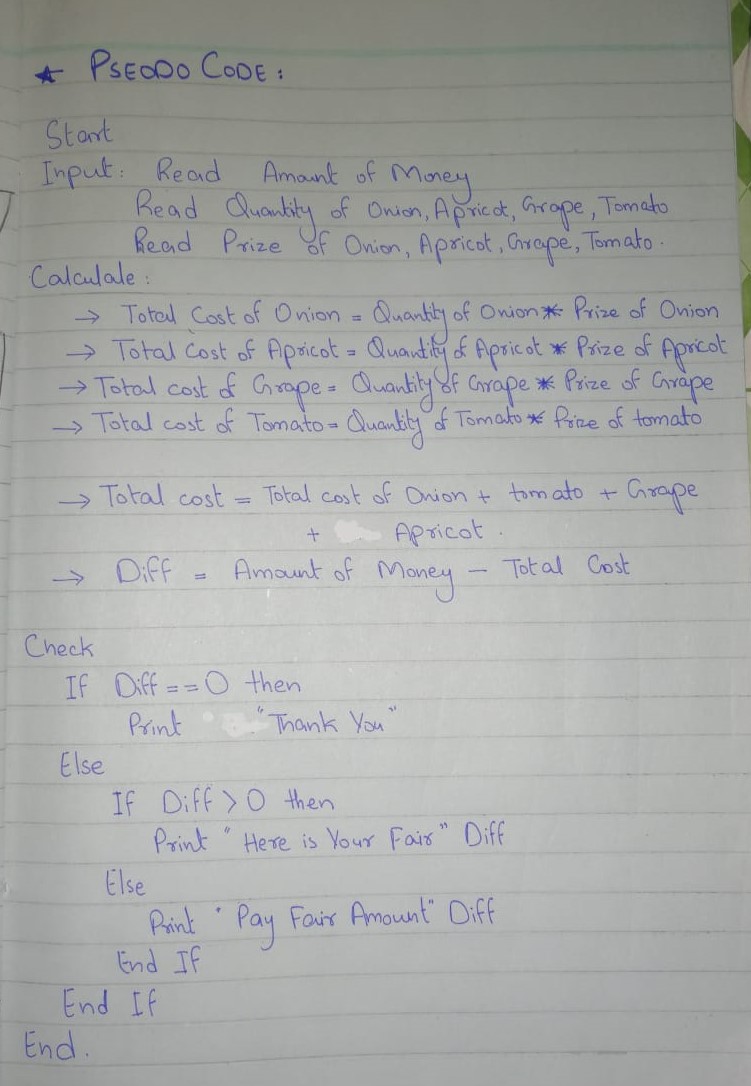 * PSEODO CODE :
Start
Input : Read Amount of Money
Read Quantity of Onion, Apricot, Grape, Tomato
Read Prize of Onion, Apricot, Grape, Tomato.
Calculale :
→ Total Cost of Onion = Quantity of Onion * Prize of Onion
→ Total Cost of Apricot = Quantity of Apricot * Prize of Apricot
→ Total cost of Grape = Quantity of Grape * Prize of Grape
→ Total cost of Tomato = Quantity of Tomato * Prize of tomato
→ Total cost = Total cost of Onion + tomato + Grape
+ Apricot.
→ Diff = Amount of Money - Total Cost
Check
If Diff == 0 then
Print "Thank You"
Else
If Diff > 0 then
Print "Here is Your Fair" Diff
Else
Print "Pay Fair Amount" Diff
End If
End If
End.